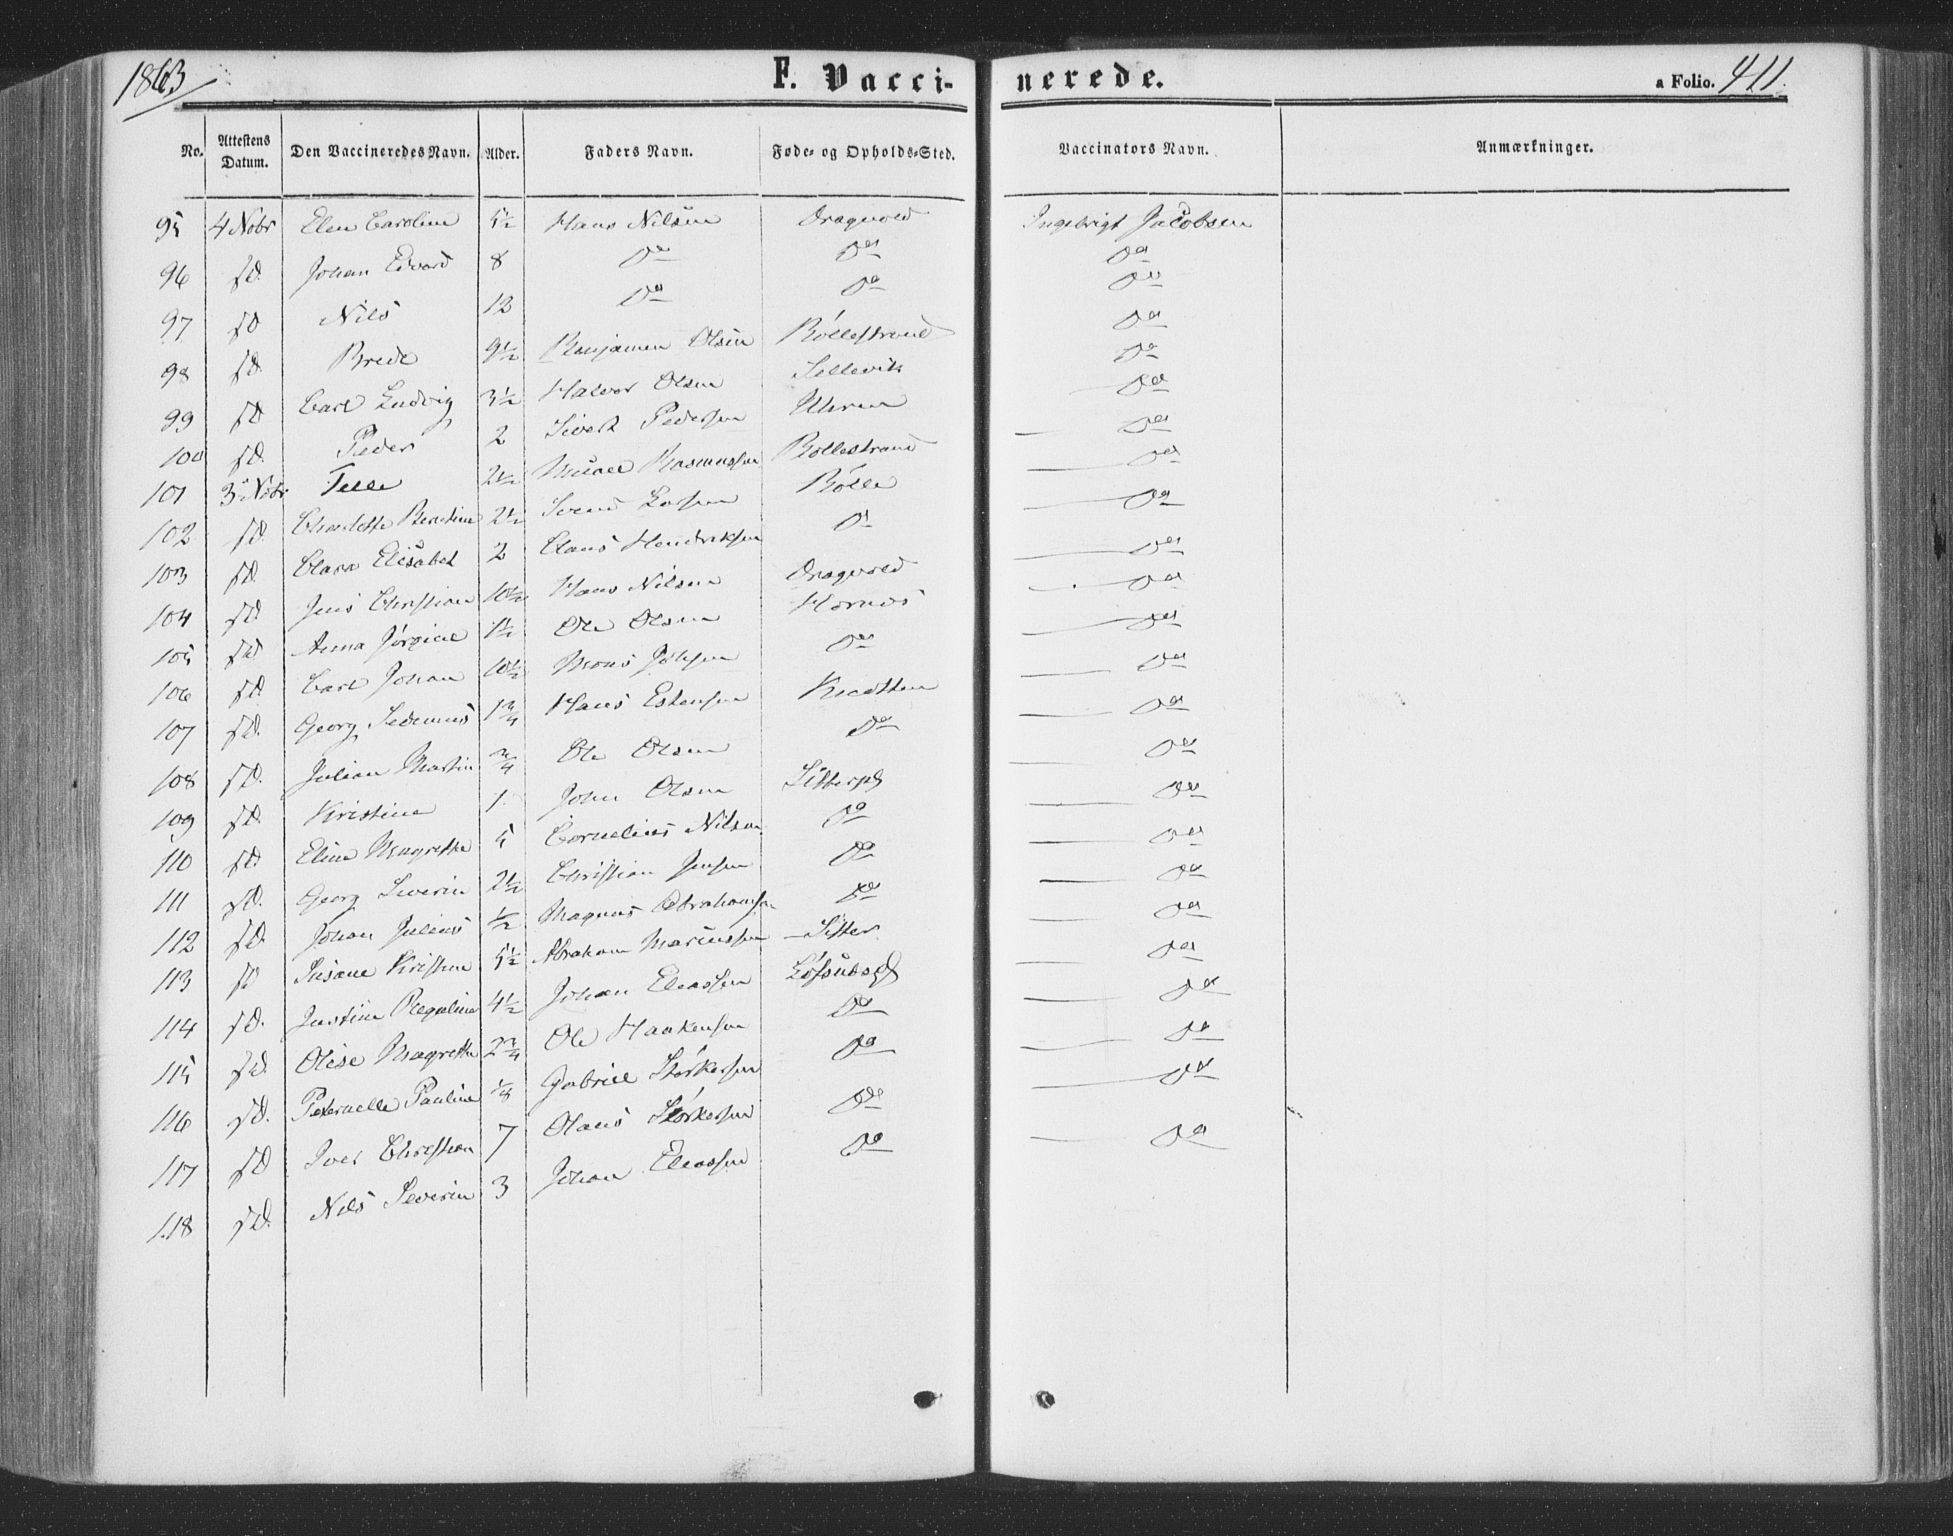 1863
F. Vacci-
nerede.
a Folio. 411.
No. Attestens Datum. Den Vaccineredes Navn. Alder. Faders Navn. Føde- og Opholds-Sted. Vaccinators Navn. Anmærkninger.
95 4 Nobr Elen Caroline 5½ Hans Nilsen Dragvold Ingebrigt Jacobsen
96 sd. Johan Edvard 8 Do Do Do
97 sd Nils 12 Do Do Do
98 sd. Brede 9½ Benjamen Olsen Böllestrand Do
99 sd Carl Ludvig 3½ Halvor Olsen Sellevik Do
100 sd. Peder 2 Sivert Pedersen Do
101 3 Nobr 2½ Rasmussen Bollestrand Do
102 sd. 2½ Svend Bölle Do
103 sd. Clara Elisabet 2 Claus Hendriksen Do Do
104 sd Jens Christian 10½ Hans Nilsen Dragvold Do
105 sd Anna Jörgine 1½ Ole Olsen Hornes Do
106 sd. Carl Johan 10½ Mons Do Do
107 sd. Georg 1¾ Hans Estensen Knotten Do
108 sd. Julian Martin ¾ Ole Olsen Do Do
109 sd. Kristine 1 John Olsen Do
110 sd. Eline Magrethe 5 Cornelius Nilsen Do Do
111 sd. Georg Severin 2½ Christian Jensen Do Do
112 sd. Johan Julius ½ Magnus Abrahamsen Do Do
113 sd Susane 5½ Abraham Mariussen Sitter Do
114 sd. Justine 4½ Johan Eleassen Do
115 sd. Olise Magrethe 2¾ Ole Haakensen Do Do
116 sd. Peternelle Pauline ⅛ Gabriel Störkersen Do Do
117 sd Iver Christian 7 Olaus Störkersen Do Do
118 sd. Nils Severin 3 Johan Eleassen Do Do